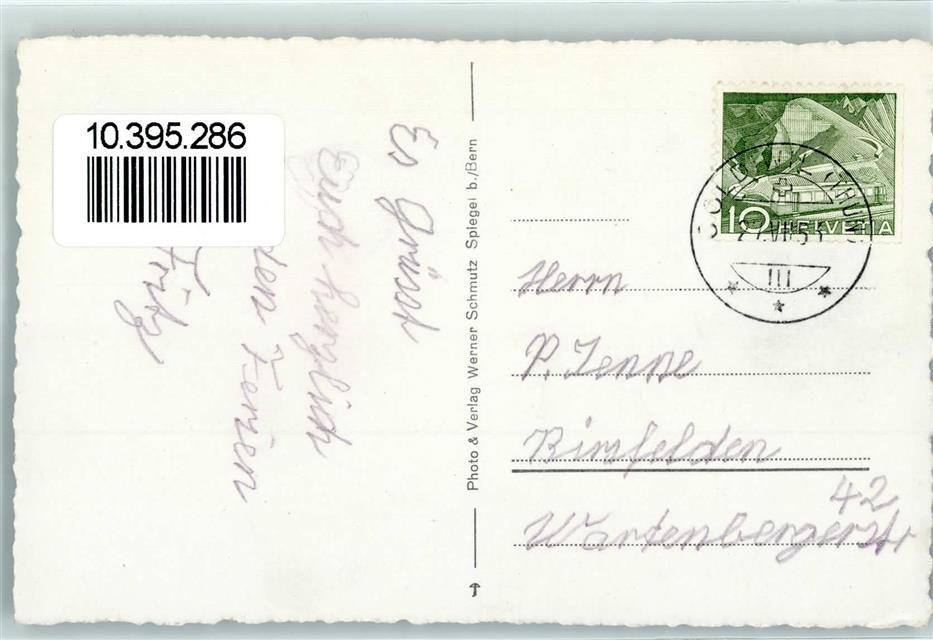 10.395.286
Es grüsst
Euch herzlich
Ferien
Fritz
Photo & Verlag Werner Schmutz Spiegel b./Bern
10 HELVETIA
III
Herrn
P. Jenne
Birnfelden
42
Wartenbergerstr